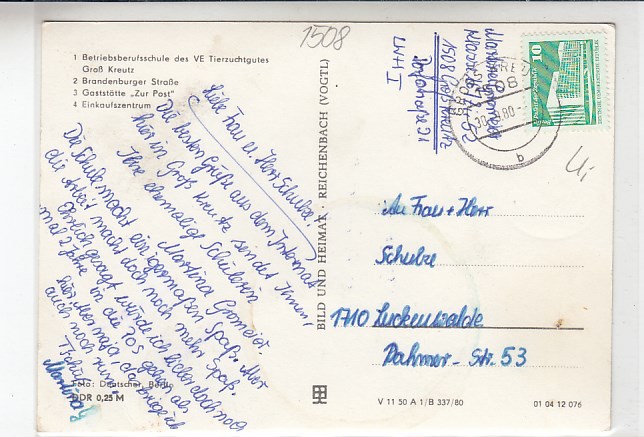 1508
1 Betriebsberufsschule des VE Tierzuchtgutes
Groß Kreutz
2 Brandenburger Straße
3 Gaststätte „Zur Post"
4 Einkaufszentrum
Liebe Frau u. Herr Schulze!
Die besten Grüße aus dem Internat
hier in Groß Kreutz sendet Ihnen
Ihre ehemalige Schülerin
Martina
Die Schule macht einigermaßen Spaß. Aber
die Arbeit macht doch noch mehr Spaß.
Ehrlich gesagt würde ich lieber doch noch
mal 2 Jahre in die POS gehen als
hier
auch noch rum.
Tschüß
Martina
Foto: Deutscher, Berlin
DDR 0,25 M
BILD UND HEIMAT · REICHENBACH (VOGTL)
1508 Groß Kreutz
LWH I
10
1508
30.-9.80
b
An Frau + Herr
Schulze
1710 Luckenwalde
Dahmer - Str. 53
V 11 50 A 1/B 337/80
01 04 12 076